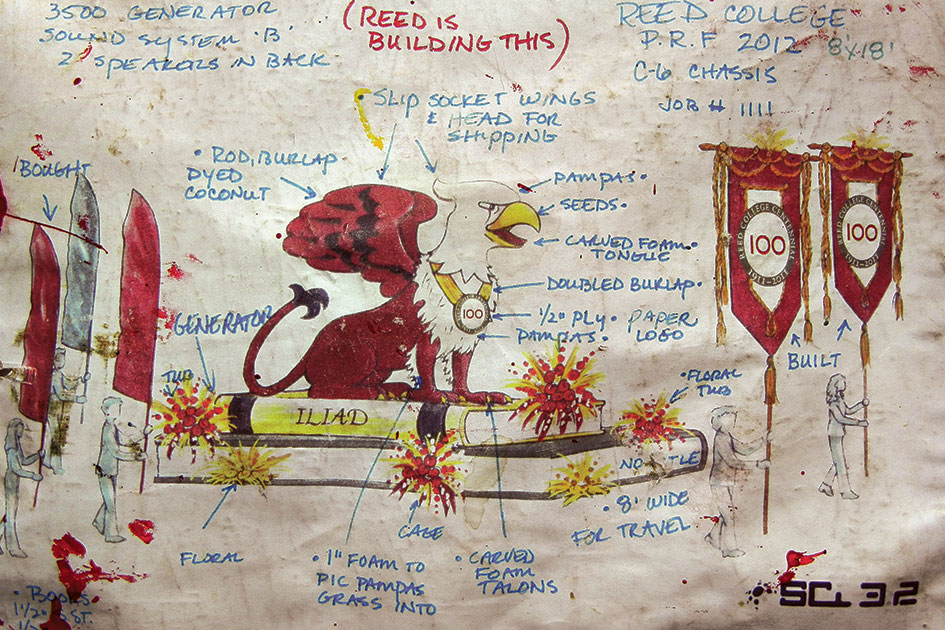 3500 GENERATOR
SOUND SYSTEM 'B'
2 SPEAKERS IN BACK
(REED IS
BUILDING THIS)
REED COLLEGE
P.R.F 2012 8'X18'
C-6 CHASSIS
JOB # 1111
• SLIP SOCKET WINGS
& HEAD FOR
SHIPPING
BOUGHT
• ROD, BURLAP
DYED
COCONUT
PAMPAS •
SEEDS •
CARVED FOAM •
TONGUE
DOUBLED BURLAP •
1/2" PLY • PAPER
LOGO
PAMPAS •
100
REED COLLEGE CENTENNIAL
1911-2011
100
REED COLLEGE CENTENNIAL
1911-2011
100
BUILT
GENERATOR
TUB
ILIAD
• FLORAL
TUB
• 8' WIDE
FOR TRAVEL
FLORAL
CAGE
• 1" FOAM TO
PIC PAMPAS
GRASS INTO
• CARVED
FOAM
TALONS
• BOOKS
1 1/2"